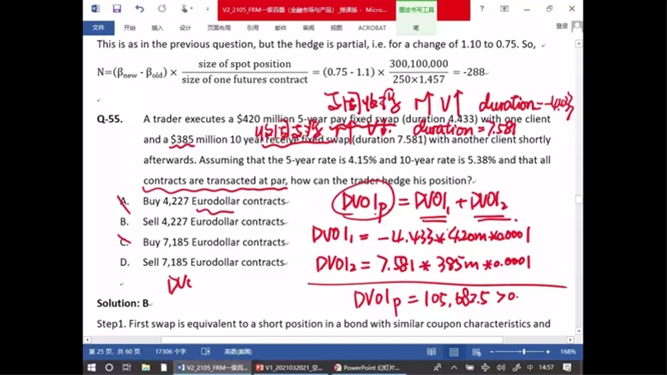 V2_2105_FRM一级百题（金融市场与产品）_授课版 - Micro...
墨迹书写工具
登录
文件 开始 插入 设计 布局 引用 邮件 审阅 视图 帮助 笔
This is as in the previous question, but the hedge is partial, i.e. for a change of 1.10 to 0.75. So,
N=(βnew - βold) × size of spot position / size of one futures contract = (0.75 - 1.1) × 300,100,000 / 250×1,457 = -288
r↑ V↑ duration=-4.433
Q-55. A trader executes a $420 million 5-year pay fixed swap (duration 4.433) with one client
duration=7.581
and a $385 million 10 year receive fixed swap (duration 7.581) with another client shortly
afterwards. Assuming that the 5-year rate is 4.15% and 10-year rate is 5.38% and that all
contracts are transacted at par, how can the trader hedge his position?
A. Buy 4,227 Eurodollar contracts
B. Sell 4,227 Eurodollar contracts
C. Buy 7,185 Eurodollar contracts
D. Sell 7,185 Eurodollar contracts
DV01p = DV01₁ + DV01₂
DV01₁ = -4.433*420m*0.0001
DV01₂ = 7.581*385m*0.0001
DV01p = 105,687.5 >0.
Solution: B
Step1. First swap is equivalent to a short position in a bond with similar coupon characteristics and
第 25 页，共 60 页 17306 个字 英语(美国) 168%
V2_2105_FRM一级百... V1_2021032021_空... PowerPoint 幻灯片... 中 14:57